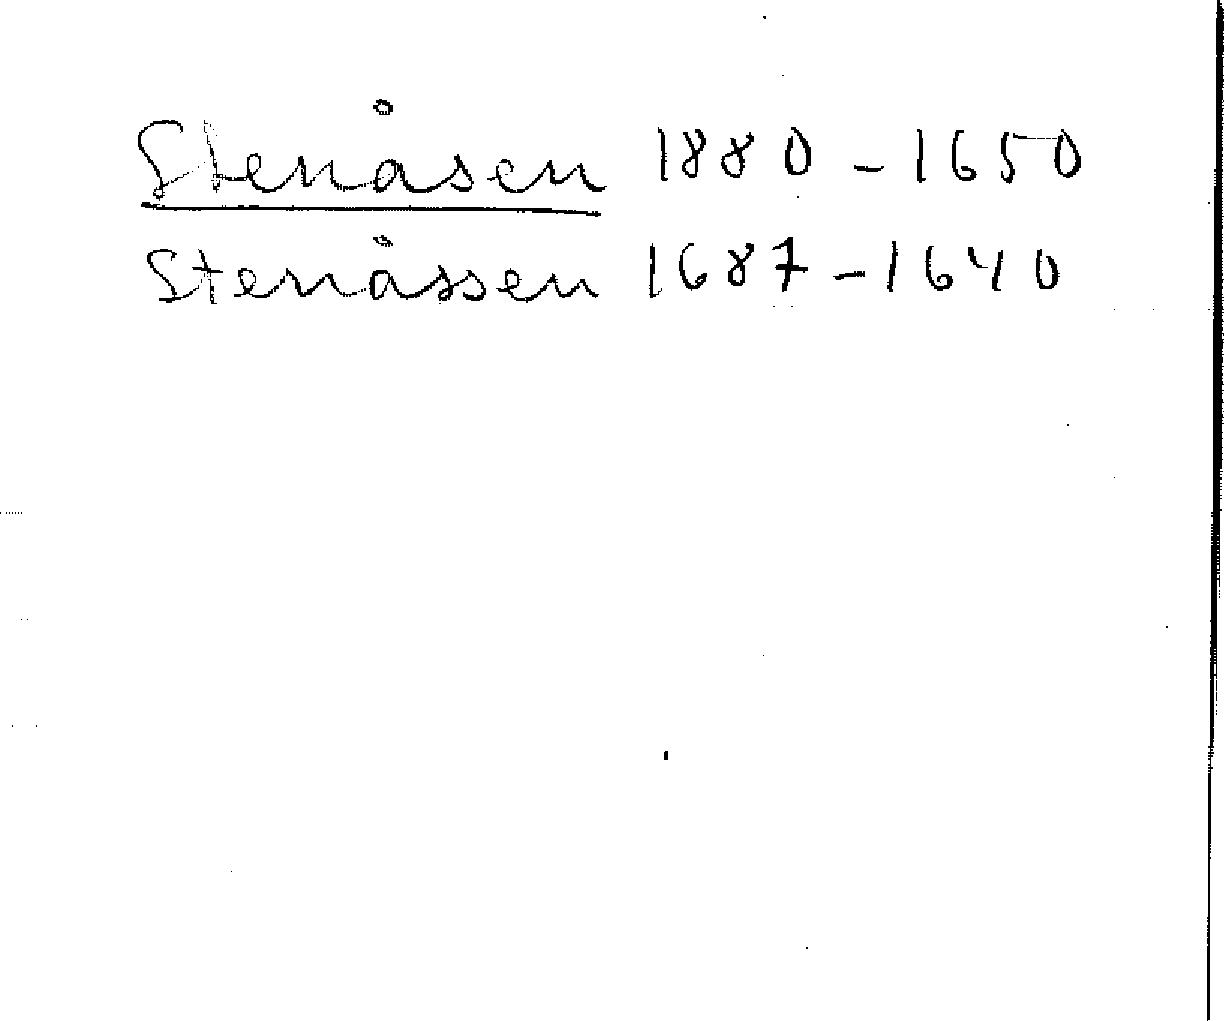 Stenåsen 1880-1650
Stenåssen 1687-1640